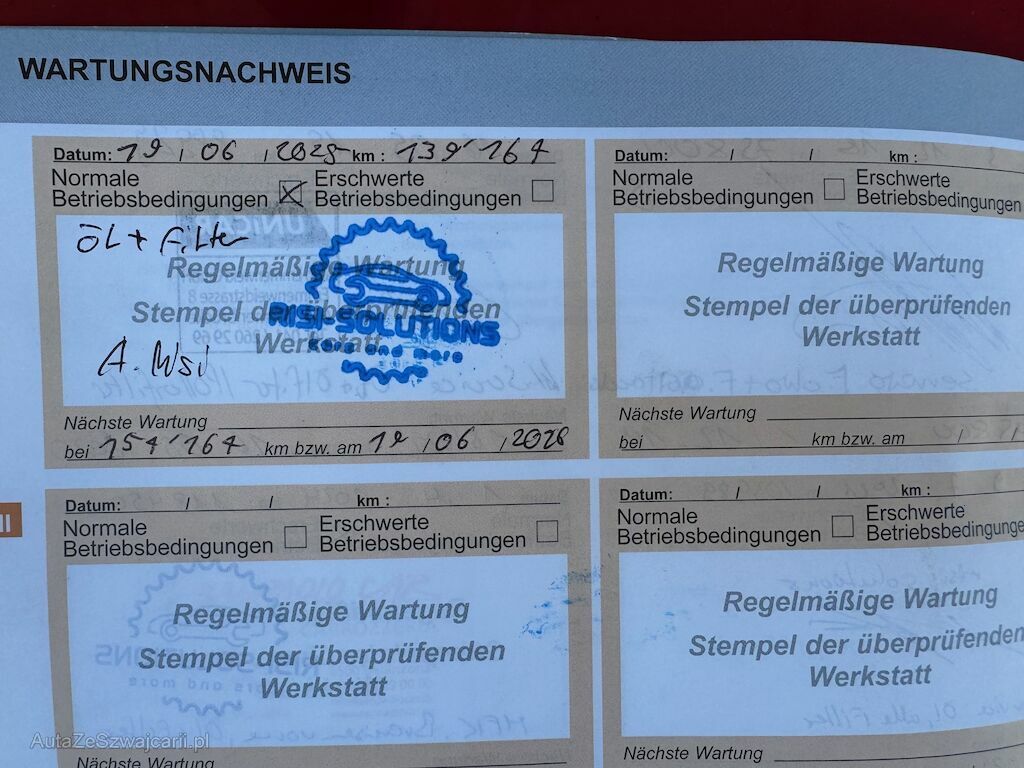 WARTUNGSNACHWEIS
Datum: 19 / 06 / 2025 km : 139'164
Normale Betriebsbedingungen Erschwerte Betriebsbedingungen
ÖL + Filter
Regelmäßige Wartung
Stempel der überprüfenden
Werkstatt
RISI-SOLUTIONS
cars and more
A. Risi
Nächste Wartung
bei 154'164 km bzw. am 19 / 06 / 2028
Datum: / / km :
Normale Betriebsbedingungen Erschwerte Betriebsbedingungen
Regelmäßige Wartung
Stempel der überprüfenden
Werkstatt
Nächste Wartung
bei km bzw. am / /
II
Datum: / / km :
Normale Betriebsbedingungen Erschwerte Betriebsbedingungen
Regelmäßige Wartung
Stempel der überprüfenden
Werkstatt
Nächste Wartung
Datum: / / km :
Normale Betriebsbedingungen Erschwerte Betriebsbedingungen
Regelmäßige Wartung
Stempel der überprüfenden
Werkstatt
Nächste Wartung
AutaZeSzwajcarii.pl